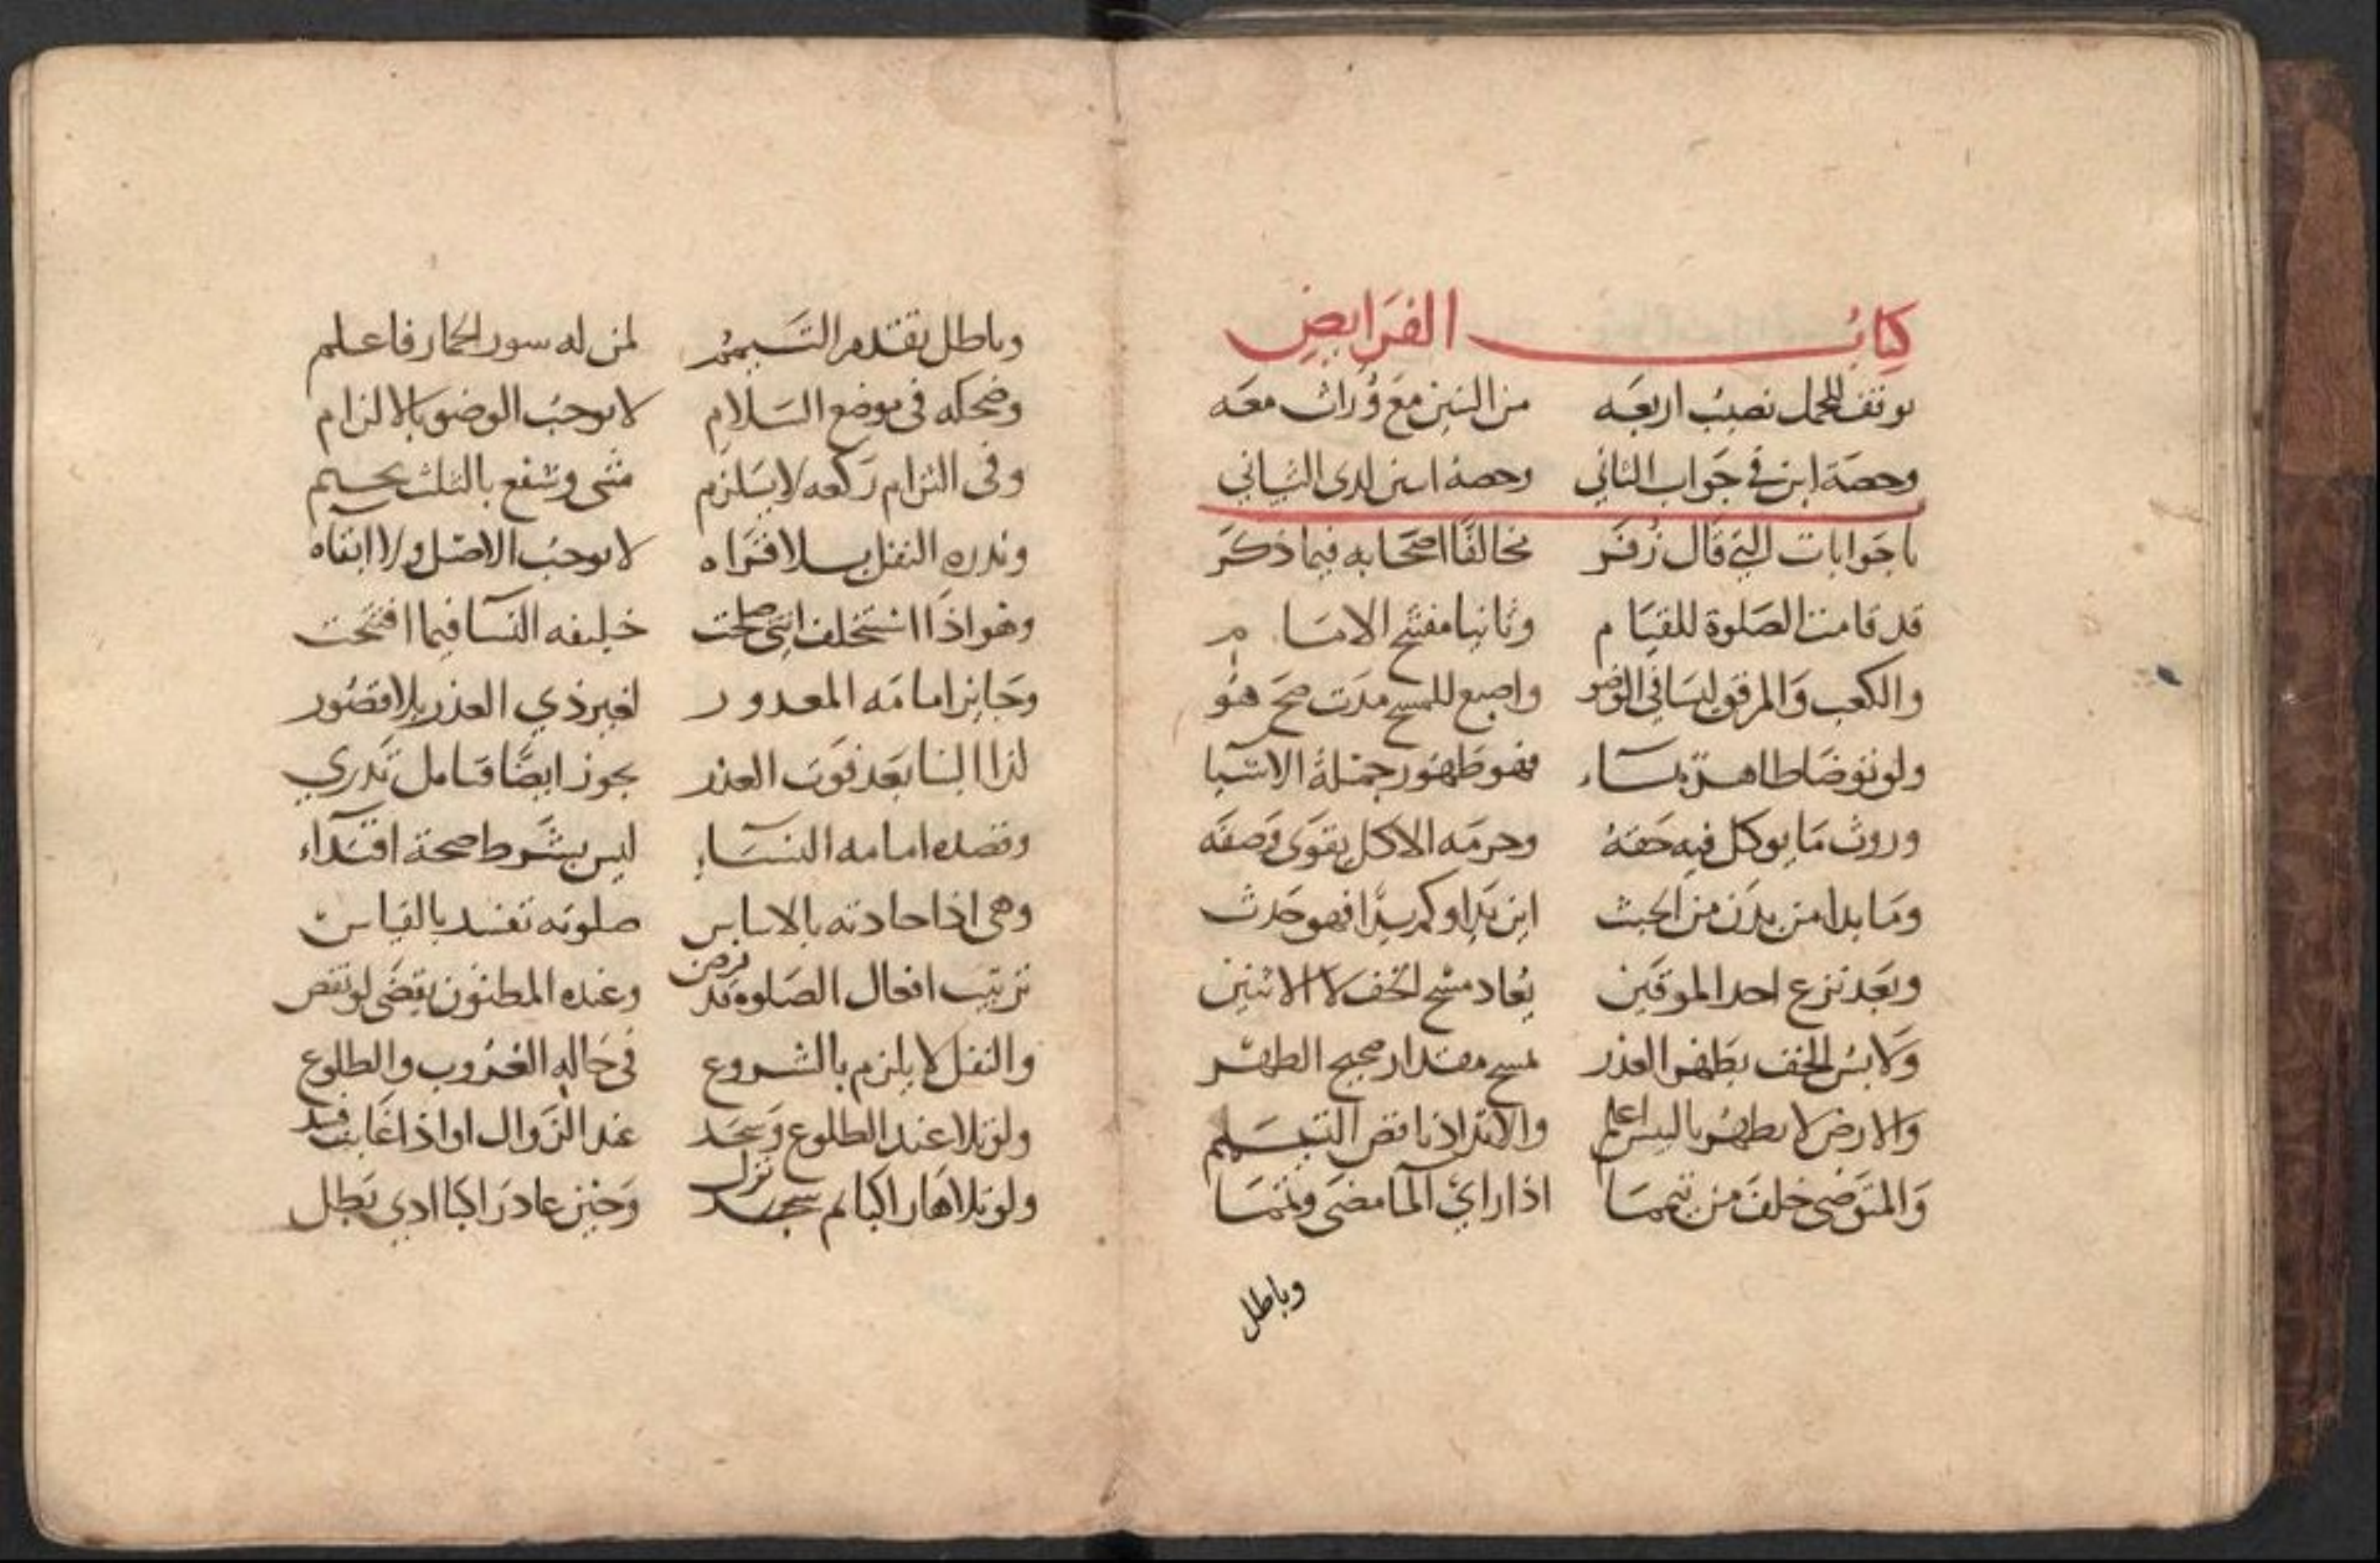 كتاب الفرايض
يوقف للحمل نصيب اربعه من البنين مع وراث معه
وحصة ابن في جواب الثاني وحصة ابنين لدى الشيباني
باب جوابات التي قال زفر مخالفا اصحابه فيما ذكر
قد قامت الصلوة للقيام وثانيا مفتتح الامام
والكعب والمرفق ليسا في الوضو واصبع للمسح مدت صح هو
ولو توضا طاهر بماء فهو طهور جملة الاشيا
وروث ما يوكل فيه خفه وحرمه الاكل يقوى وصفه
وما بدا من بدن من الخبث اين بدا وكم بدا فهو حدث
وبعد نزع احد الموقين يعاد مسح الخف لا الاثنين
ولابس الخف بطهر العذر يمسح مقدار صحيح الطهر
والارض لا تطهر باليبس اعلم والارتداد ناقض التيمم
والمتوضى خلف من تيمما اذا راى الما مضى وتمما
وباطل
وباطل تقدم التيمم لمن له سور الحمار فاعلم
وضحكه في موضع السلام لا يوجب الوضو بالالزام
وفي التزام ركعه لا يلزم مثنى وشفع بالثلث يحسم
ونذره النفل بلا قراه لا يوجب الاصل ولا ابقاه
وهو اذا استخلف انثى صلحت خليفه النسا فيما افتتحت
وجايز امامه المعذور لغير ذي العذر بلا قصور
لذا البنا بعد فوت العذر يجوز ايضا فتامل تدري
وقصده امامه النساء ليس بشرط صحة اقتداء
وهي اذا حاذته بالاساس صلوته تفسد بالقياس
ترتيب افعال الصلوه قد فرض وعنده المظنون يقضى لو نقض
والنفل لا يلزم بالشروع في حاله الغروب والطلوع
ولو تلا عند الطلوع وسجد عند الزوال او اذا غابت فسد
ولو تلاها راكبا ثم نزل وحين عاد راكبا ادي بطل